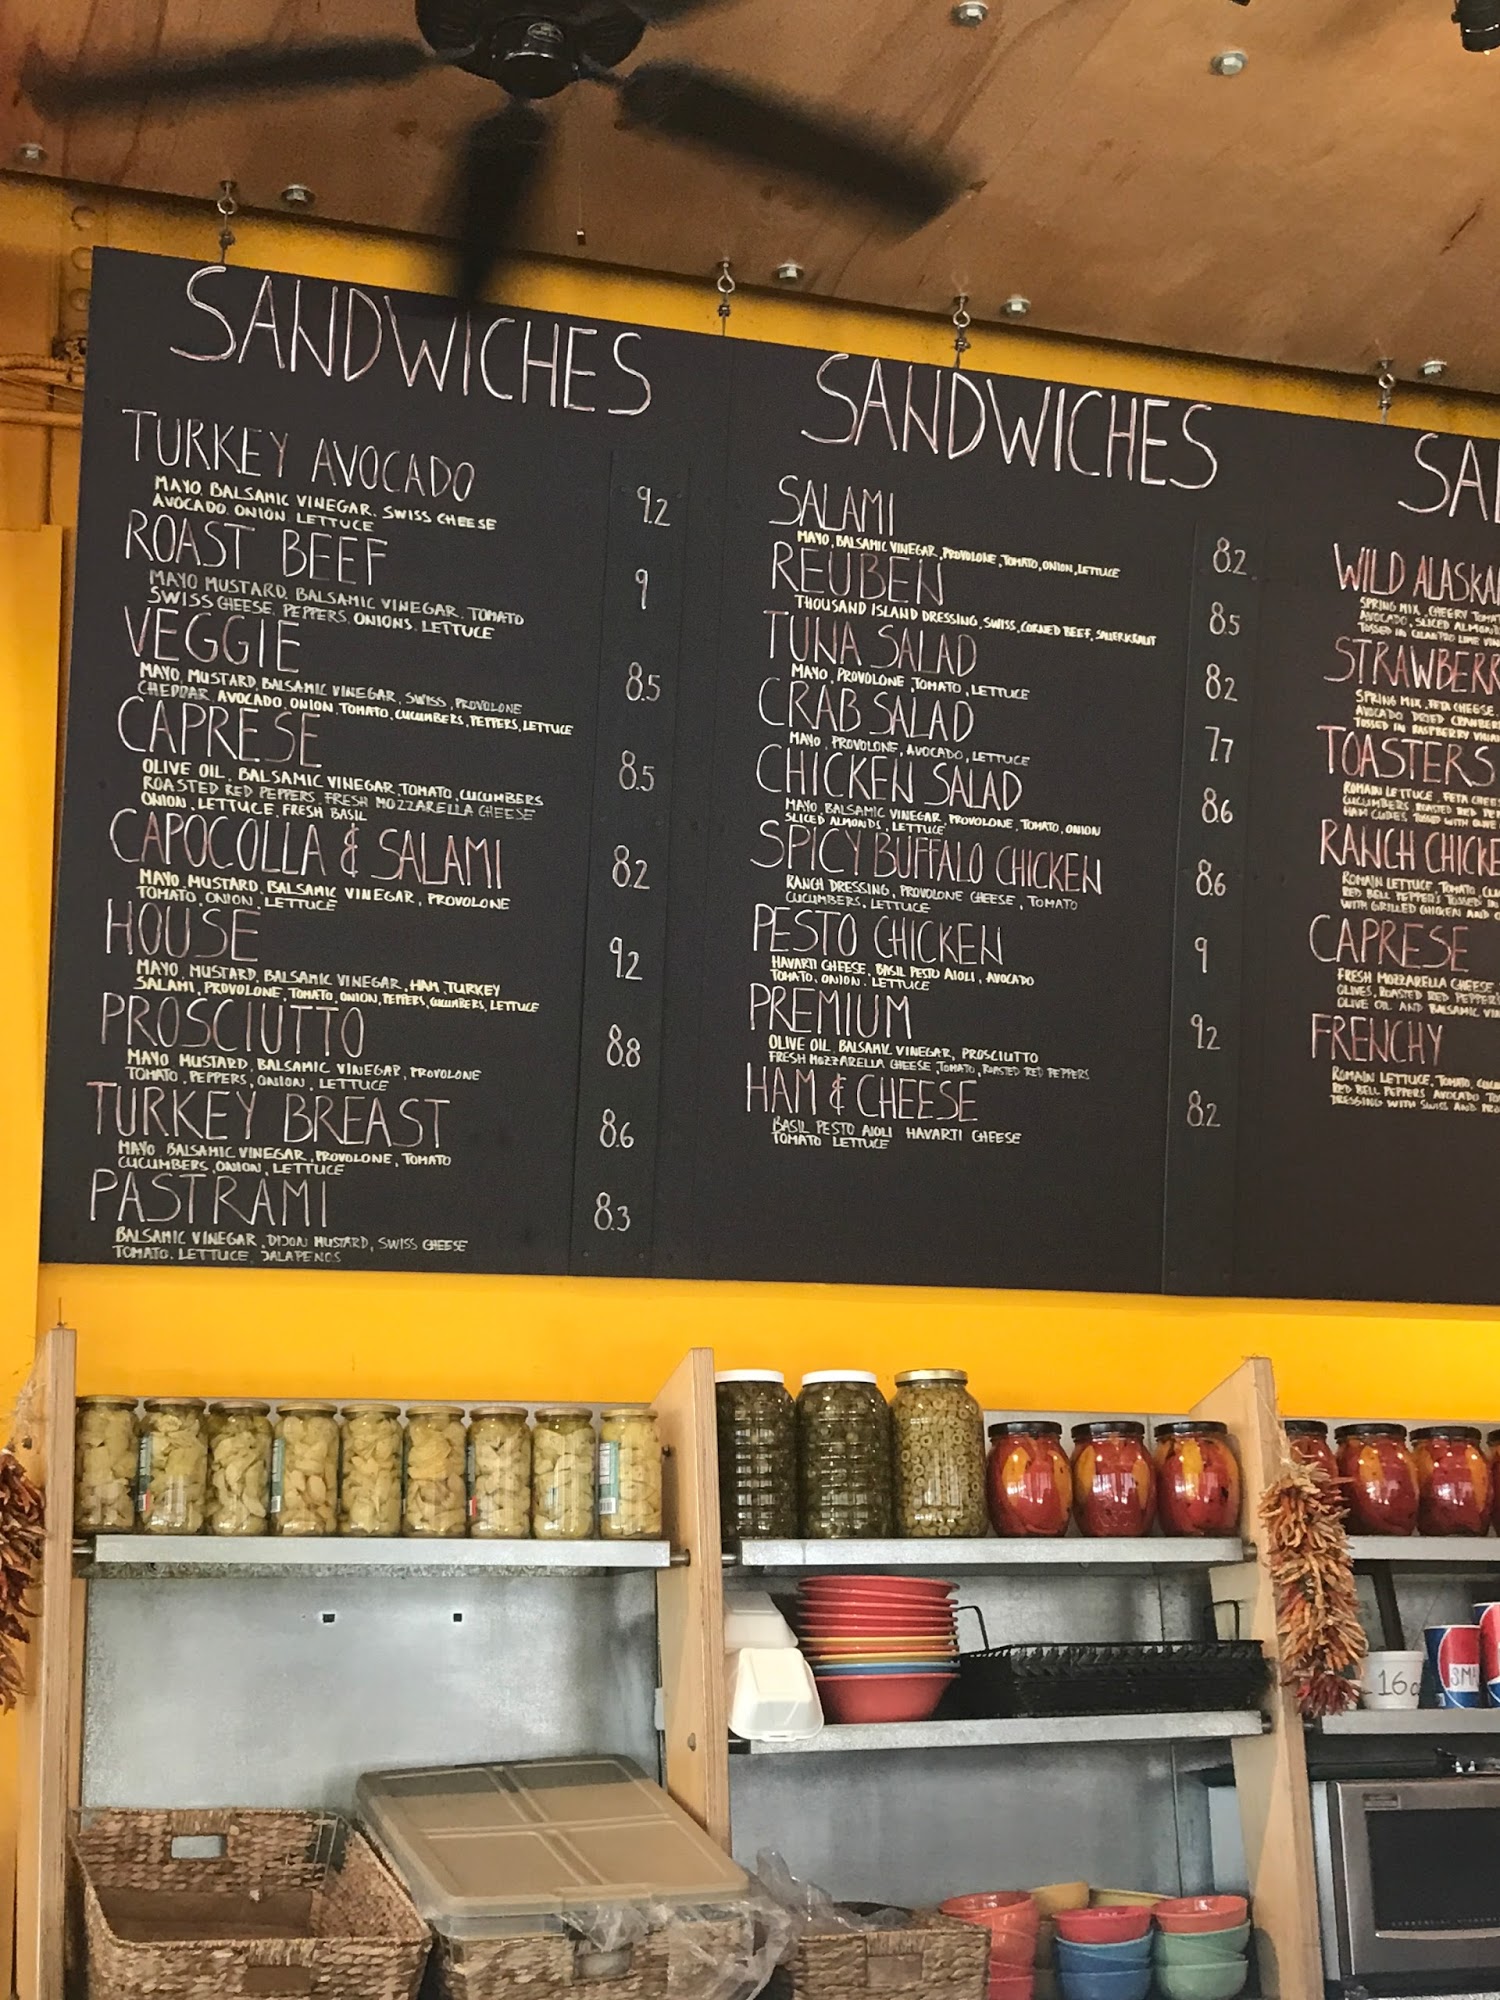 SANDWICHES
TURKEY AVOCADO 9.2
MAYO, BALSAMIC VINEGAR, SWISS CHEESE
AVOCADO, ONION, LETTUCE
ROAST BEEF 9
MAYO MUSTARD, BALSAMIC VINEGAR, TOMATO
SWISS CHEESE, PEPPERS, ONIONS, LETTUCE
VEGGIE 8.5
MAYO, MUSTARD, BALSAMIC VINEGAR, SWISS, PROVOLONE
CHEDDAR, AVOCADO, ONION, TOMATO, CUCUMBERS, PEPPERS, LETTUCE
CAPRESE 8.5
OLIVE OIL, BALSAMIC VINEGAR, TOMATO, CUCUMBERS
ROASTED RED PEPPERS, FRESH MOZZARELLA CHEESE
ONION, LETTUCE, FRESH BASIL
CAPOCOLLA & SALAMI 8.2
MAYO, MUSTARD, BALSAMIC VINEGAR, PROVOLONE
TOMATO, ONION, LETTUCE
HOUSE 9.2
MAYO, MUSTARD, BALSAMIC VINEGAR, HAM, TURKEY
SALAMI, PROVOLONE, TOMATO, ONION, PEPPERS, CUCUMBERS, LETTUCE
PROSCIUTTO 8.8
MAYO MUSTARD, BALSAMIC VINEGAR, PROVOLONE
TOMATO, PEPPERS, ONION, LETTUCE
TURKEY BREAST 8.6
MAYO, BALSAMIC VINEGAR, PROVOLONE, TOMATO
CUCUMBERS, ONION, LETTUCE
PASTRAMI 8.3
BALSAMIC VINEGAR, DIJON MUSTARD, SWISS CHEESE
TOMATO, LETTUCE, JALAPENOS
SANDWICHES
SALAMI 8.2
MAYO, BALSAMIC VINEGAR, PROVOLONE, TOMATO, ONION, LETTUCE
REUBEN 8.5
THOUSAND ISLAND DRESSING, SWISS, CORNED BEEF, SAUERKRAUT
TUNA SALAD 8.2
MAYO, PROVOLONE, TOMATO, LETTUCE
CRAB SALAD 7.7
MAYO, PROVOLONE, AVOCADO, LETTUCE
CHICKEN SALAD 8.6
MAYO, BALSAMIC VINEGAR, PROVOLONE, TOMATO, ONION
SLICED ALMONDS, LETTUCE
SPICY BUFFALO CHICKEN 8.6
RANCH DRESSING, PROVOLONE CHEESE, TOMATO
CUCUMBERS, LETTUCE
PESTO CHICKEN 9
HAVARTI CHEESE, BASIL PESTO AIOLI, AVOCADO
TOMATO, ONION, LETTUCE
PREMIUM 9.2
OLIVE OIL, BALSAMIC VINEGAR, PROSCIUTTO
FRESH MOZZARELLA CHEESE, TOMATO, ROASTED RED PEPPERS
HAM & CHEESE 8.2
BASIL PESTO AIOLI HAVARTI CHEESE
TOMATO LETTUCE
SAL
WILD ALASKAN
SPRING MIX, CHERRY TOMAT
AVOCADO, SLICED ALMOND
TOSSED IN CILANTRO LIME VIN
STRAWBERR
SPRING MIX, FETA CHEESE,
AVOCADO DRIED CRANBERR
TOSSED IN RASPBERRY VINAI
TOASTERS
ROMAIN LETTUCE, FETA CHEES
CUCUMBERS, ROASTED RED PEP
HAM CUBES TOSSED WITH OLIVE
RANCH CHICKE
ROMAIN LETTUCE, TOMATO, CU
RED BELL PEPPERS TOSSED IN
WITH GRILLED CHICKEN AND C
CAPRESE
FRESH MOZZARELLA CHEESE,
OLIVES, ROASTED RED PEPPER
OLIVE OIL AND BALSAMIC VIN
FRENCHY
ROMAIN LETTUCE, TOMATO, CUCU
RED BELL PEPPERS AVOCADO TO
DRESSING WITH SWISS AND PRO
16o
SMA